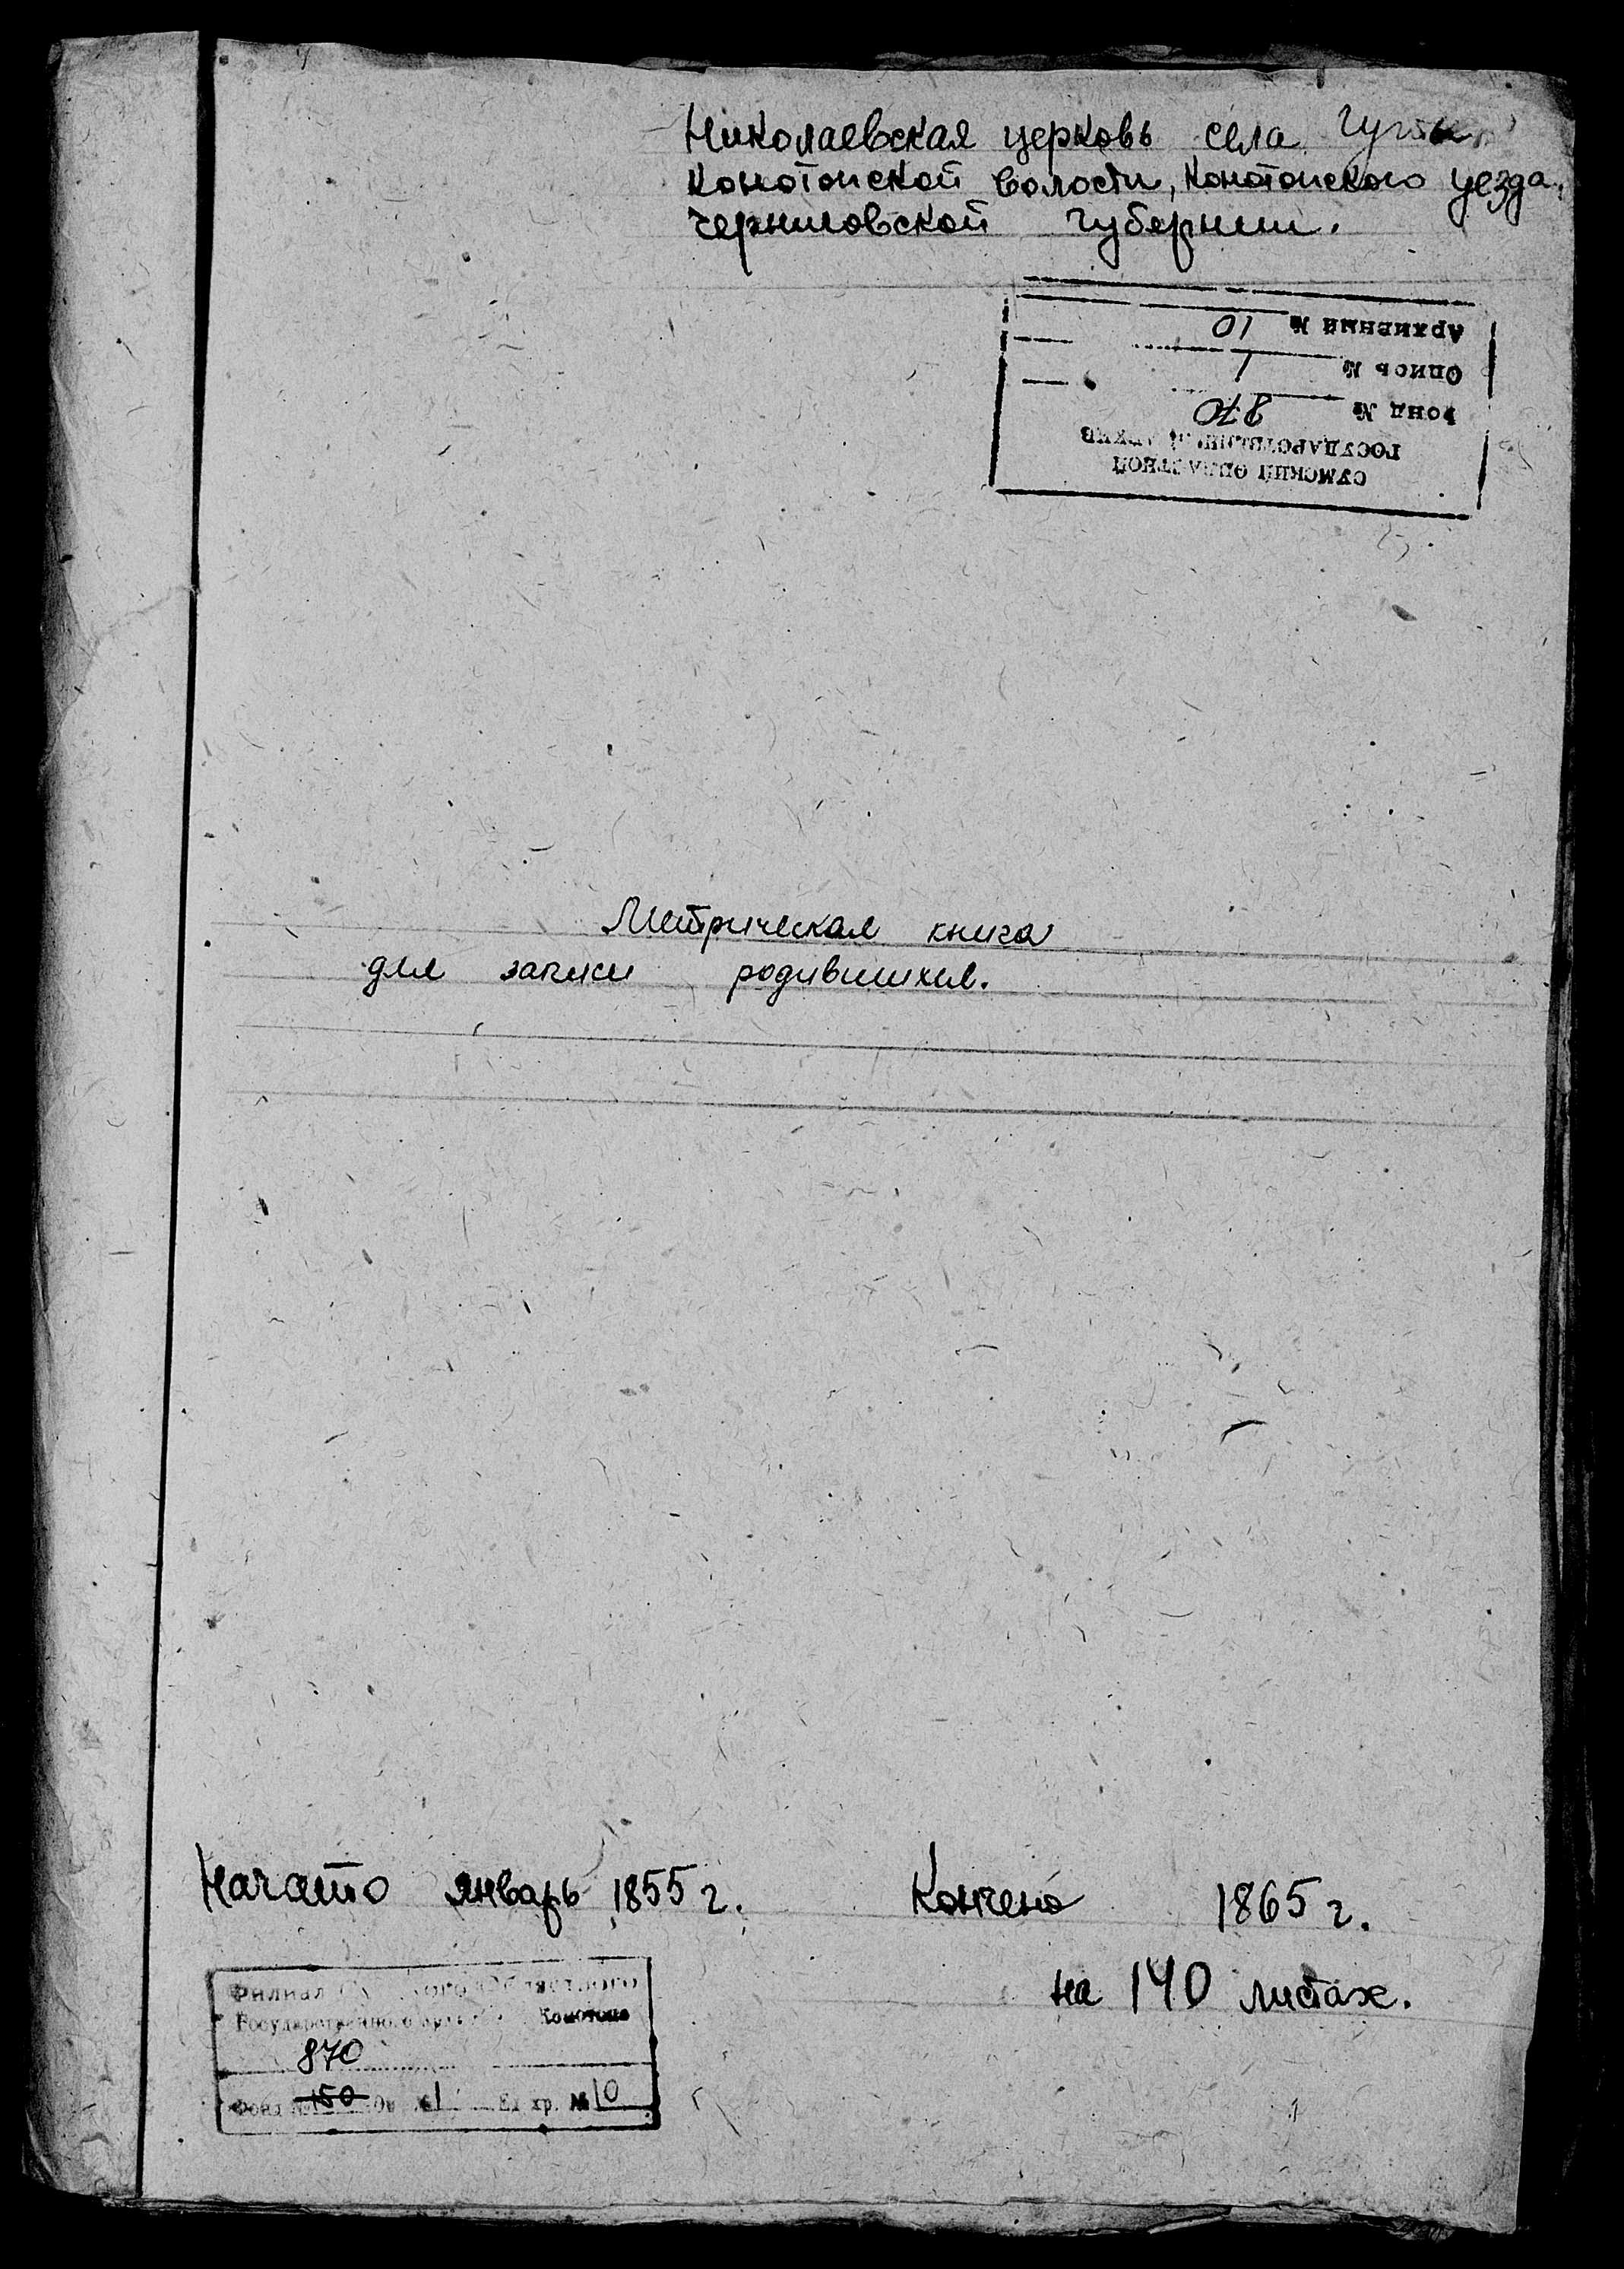 Николаевская церковь села Гуты
Конотопской волости, Конотопского уезда,
Черниговской губернии.
Архивный № 10
Опись № 1
Фонд № 870
ГОСУДАРСТВЕННЫЙ АРХИВ
СУМСКИЙ ОБЛАСТНОЙ
Метрическая книга
для записи родившихся.
Начато январь 1855 г. Кончено 1865 г.
на 140 листах.
Филиал Сумского Областного
Государственного архива Конотопе
870
Фонд № 150 Оп. № 1 Ед. хр. № 10